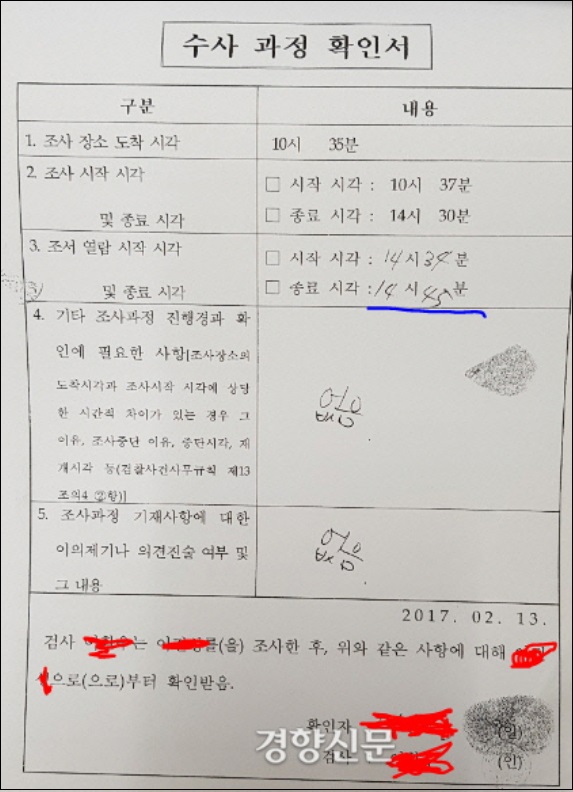 수사 과정 확인서
구분 내용
1. 조사 장소 도착 시각 10시 35분
2. 조사 시작 시각 □ 시작 시각 : 10시 37분
및 종료 시각 □ 종료 시각 : 14시 30분
3. 조서 열람 시작 시각 □ 시작 시각 : 14시 34분
및 종료 시각 □ 종료 시각 : 14시 45분
4. 기타 조사과정 진행경과 확
인에 필요한 사항[조사장소의
도착시각과 조사시작 시각에 상당
한 시간적 차이가 있는 경우 그
이유, 조사중단 이유, 중단시각, 재
개시각 등(검찰사건사무규칙 제13
조의4 ②항)]
없음
5. 조사과정 기재사항에 대한
이의제기나 의견진술 여부 및
그 내용
없음
2017. 02. 13.
검사 는 를(을) 조사한 후, 위와 같은 사항에 대해
으로(으로)부터 확인받음.
확인자 (인)
경향신문
검사 (인)